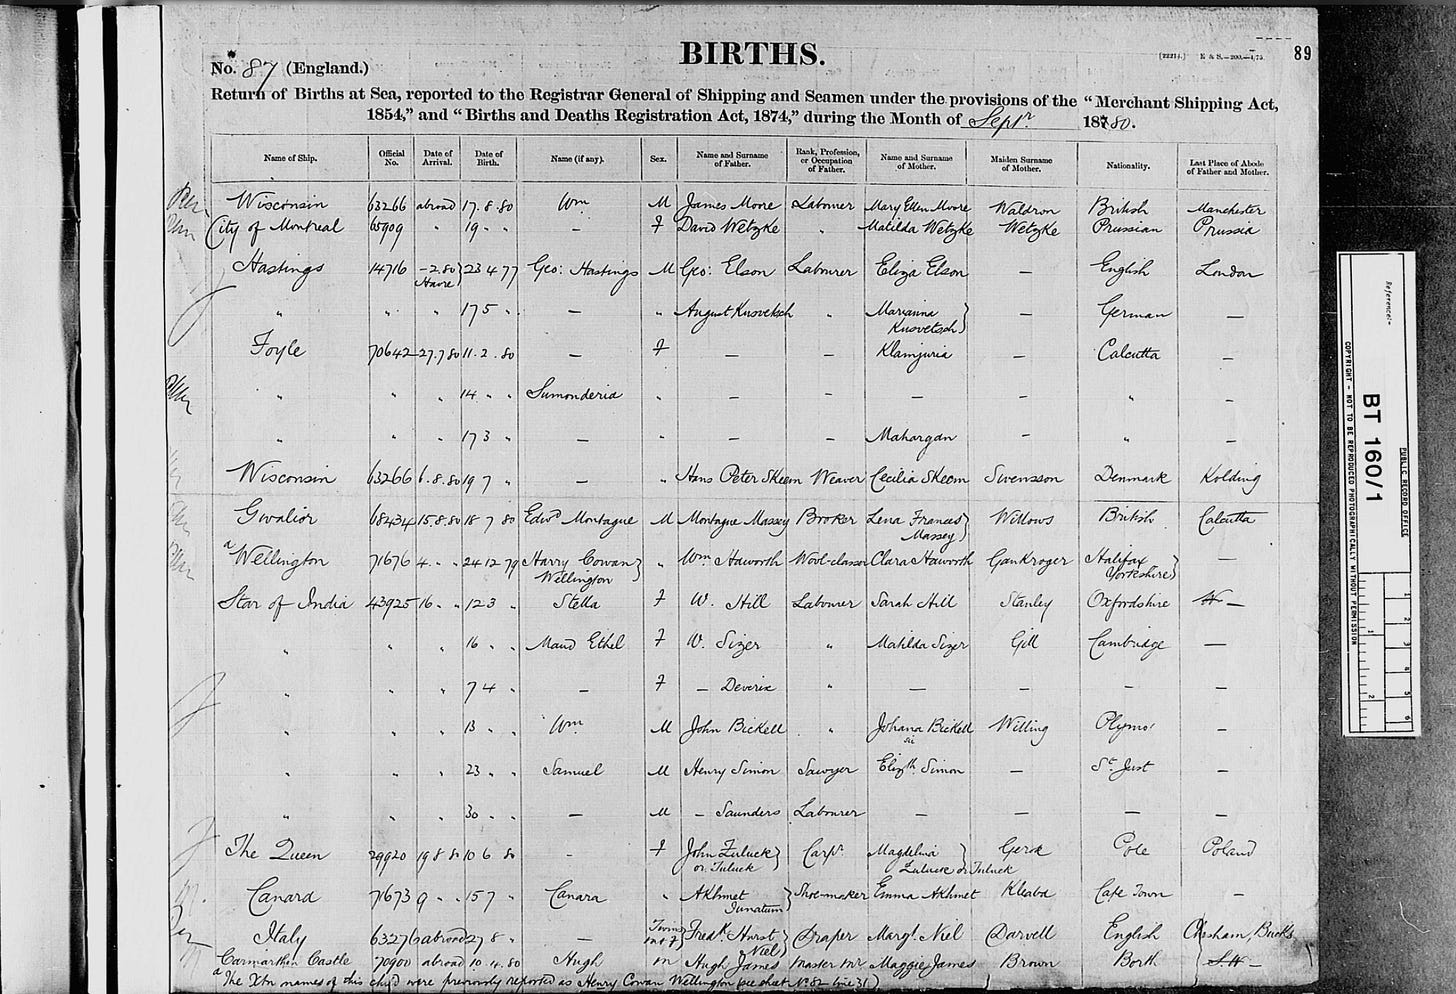 BIRTHS.
(22214.) E & S.—200.—4/75.
89
No. 87 (England.)
Return of Births at Sea, reported to the Registrar General of Shipping and Seamen under the provisions of the “Merchant Shipping Act,
1854,” and “Births and Deaths Registration Act, 1874,” during the Month of Septr. 1880.
Name of Ship. Official No. Date of Arrival. Date of Birth. Name (if any). Sex. Name and Surname of Father. Rank, Profession, or Occupation of Father. Name and Surname of Mother. Maiden Surname of Mother. Nationality. Last Place of Abode of Father and Mother.
Wisconsin 63266 abroad 17.8.80 Wm M James Moore Labourer Mary Ellen Moore Waldron British Manchester
City of Montreal 65909 " 19 " " — F David Wetzke " Matilda Wetzke Wetzke Prussian Prussia
Hastings 14716 -2.80 Havre 23 4 77 Geo: Hastings M Geo: Elson Labourer Eliza Elson — English London
" " " 17 5 " — " August Kusvetsch " Marianna Kusvetsch — German —
Foyle 70642 27.7.80 11.2.80 — F — — Klamjuria — Calcutta —
" " " 14 " " Sumonderia " — — — — " —
" " " 17 3 " — " — — Mahargan — " —
Wisconsin 63266 6.8.80 19 7 " — " Hans Peter Skeem Weaver Cecilia Skeem Swensson Denmark Kolding
Gwalior 68434 15.8.80 18 7 80 Edwd Montague M Montague Massey Broker Lena Frances Massey Willows British Calcutta
a Wellington 71676 4 " " 24 12 79 Harry Cowan Wellington " Wm Haworth Wool-classer Clara Haworth Gankroger Halifax Yorkshire —
Star of India 43925 16 " " 12 3 " Stella F W. Hill Labourer Sarah Hill Stanley Oxfordshire —
" " " 16 " " Maud Ethel F W. Sizer " Matilda Sizer Gill Cambridge —
" " " 7 4 " — F — Deverix " — — — —
" " " 13 " " Wm M John Bickell " Johana Bickell sic Willing Plymo' —
" " " 23 " " Samuel M Henry Simon Sawyer Elizth Simon — St Just —
" " " 30 " " — M — Saunders Labourer — — — —
The Queen 29920 19 8 80 10 6 80 — F John Zuluck or Tuluck Carpr. Magdelina Zuluck or Tuluck Gersk Pole Poland
Canard 71673 9 " " 15 7 " Canara " Akhmet Junatum Shoe-maker Emma Akhmet Kleabd Cape Town —
Italy 63276 abroad 27 8 " — Twins m & f Fredk. Hurst Niel Draper Margt. Niel Darvell English Chesham, Bucks
Carmarthen Castle 70900 abroad 10.4.80 Hugh m Hugh James Master Mr Maggie James Brown Borth —
a The Xtn names of this child were previously reported as Henry Cowan Wellington (see sheet No. 82 line 31)
Reference:-
BT 160/1
PUBLIC RECORD OFFICE
COPYRIGHT - NOT TO BE REPRODUCED PHOTOGRAPHICALLY WITHOUT PERMISSION